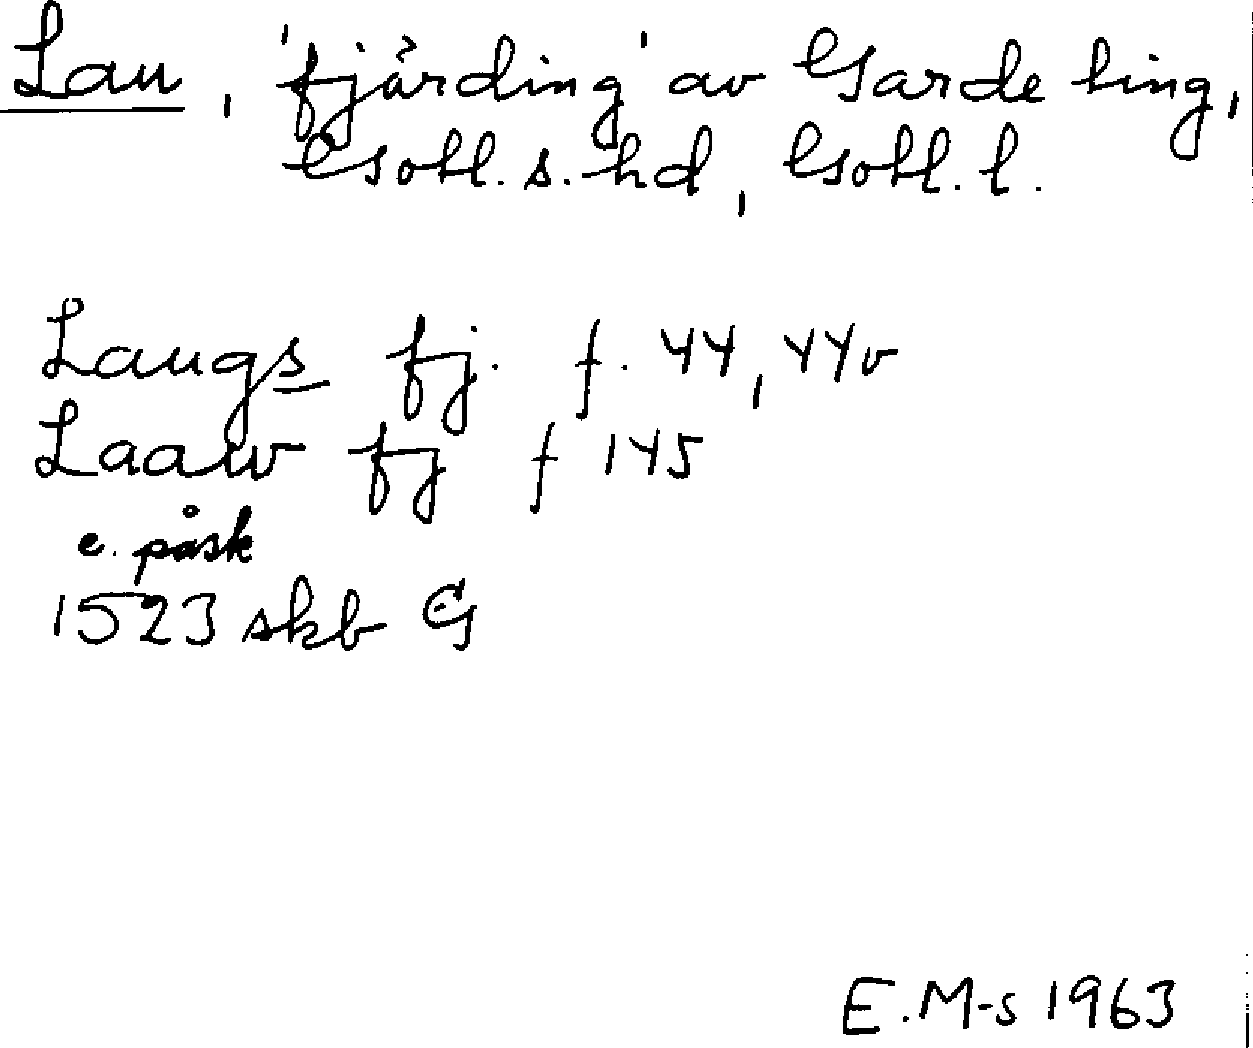 Lau, 'fjärding' av Garde ting,
Gotl. s. hd, Gotl. l.
Laugs fj. f. 44, 44v
Laaw fj f 145
e. påsk
1523 skb G
E. M-s 1963